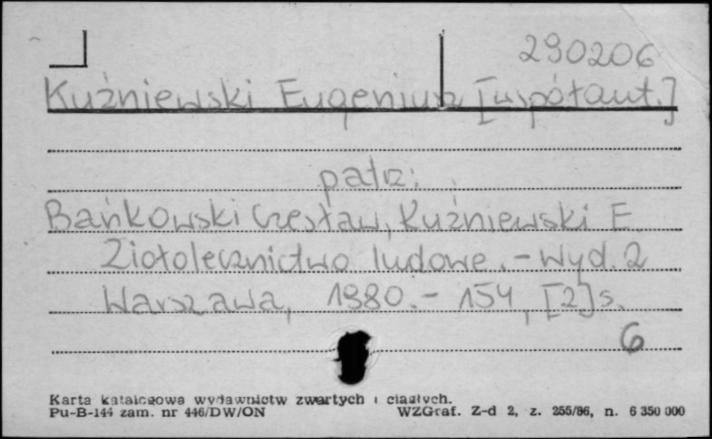 290206
Kuźniewski Eugeniusz [współaut.]
patrz:
Bańkowski Czesław, Kuźniewski E.
Ziołolecznictwo ludowe. - Wyd. 2
Warszawa, 1980. - 154, [2] s.
6
Karta katalogowa wydawnictw zwartych i ciągłych.
Pu-B-144 zam. nr 446/DW/ON WZGraf. Z-d 2, z. 255/86, n. 6 350 000